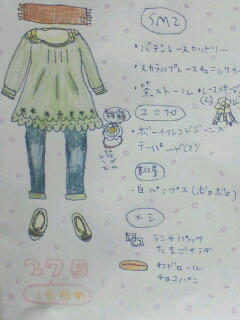 SM2
・バテンレースカットソー
・スカラップレースチュニックカ
・茶ストール
(2)
ユニクロ
・ボーイフレンドジーンズ
テーパード(2)
靴屋
・白パンプス(ボロボロ)
メシ
ランチパック
たまごサラダ
サンドロール
チョコパン
27日